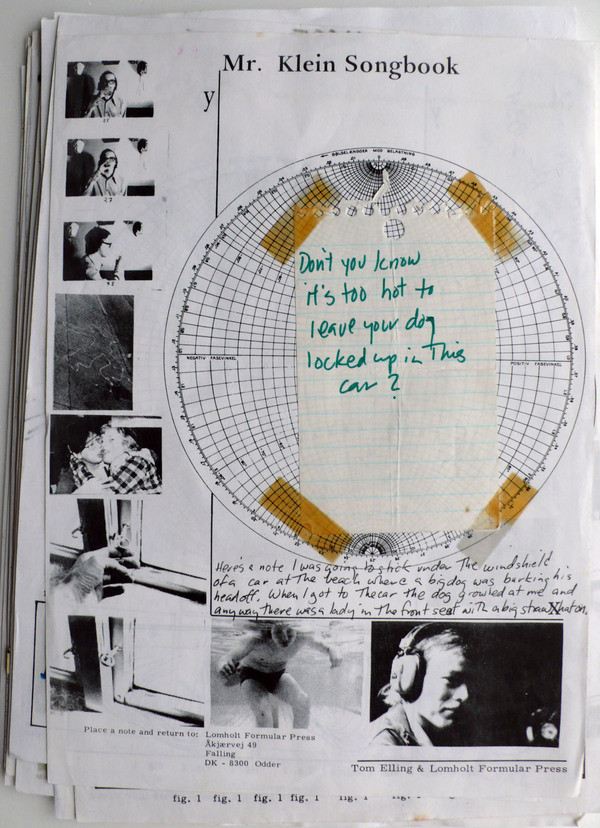 Mr. Klein Songbook
y
NEGATIV FASEVINKEL
POSITIV FASEVINKEL
Don't you know
it's too hot to
leave your dog
locked up in This
car?
Here's a note I was going to stick under The windshield
of a car at The beach where a big dog was barking his
head off. When I got to The car the dog growled at me and
anyway There was a lady in the front seat with a big straw hat on.
X
Place a note and return to: Lomholt Formular Press
Åkjærvej 49
Falling
DK - 8300 Odder
Tom Elling & Lomholt Formular Press
fig. 1 fig. 1 fig. 1 fig. 1